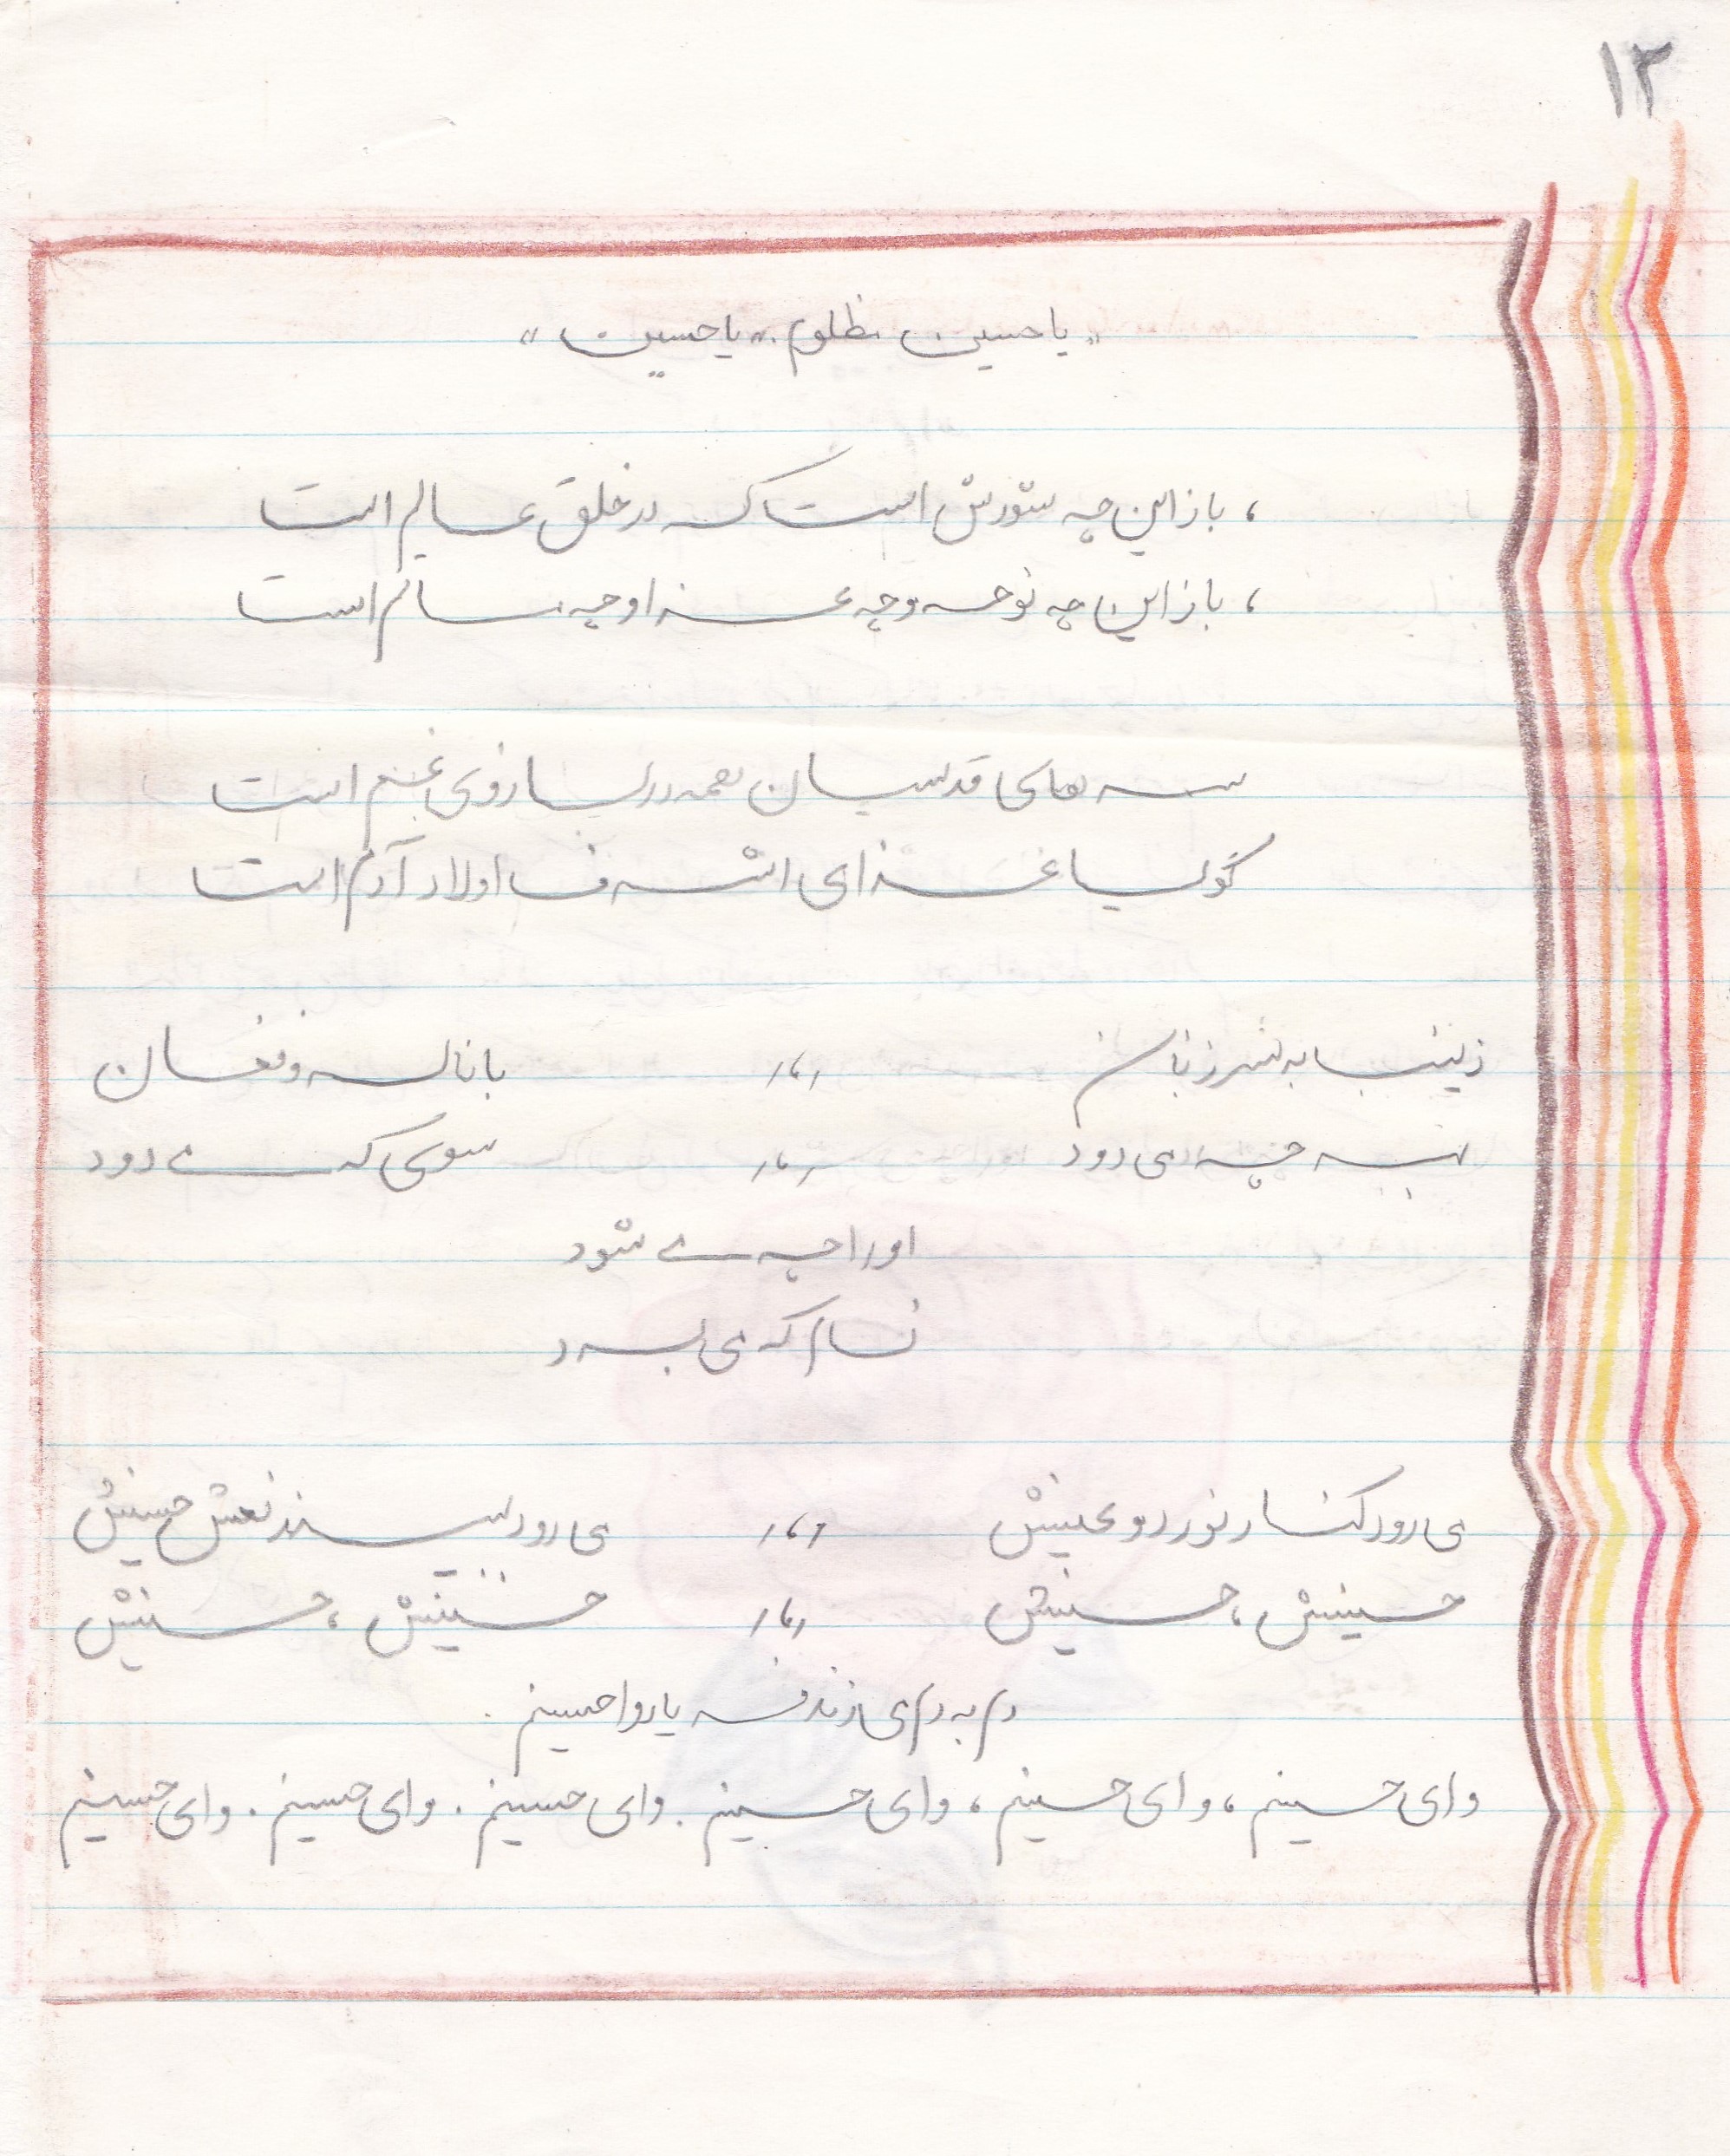 ۱۳
« یا حسین مظلوم .» یا حسین »
، باز این چه شورش است که در خلق عالم است
، باز این چه نوحه و چه عزا و چه ماتم است
سرهای قدسیان همه در بر زانوی غم است
گویا عزای اشرف اولاد آدم است
زینب به شمر زبان ،،، با ناله و فغان
می رود ،،، سوی که می رود
او را چه می شود
نام که می برد
می رود کنار نور دو عینش ،،، می رود ببیند نعش حسینش
حسینش ، حسینش ،،، حسینش ، حسینش
دم به دم می زند یا رو احسینم .
وای حسینم ، وای حسینم ، وای حسینم . وای حسینم . وای حسینم . وای حسینم